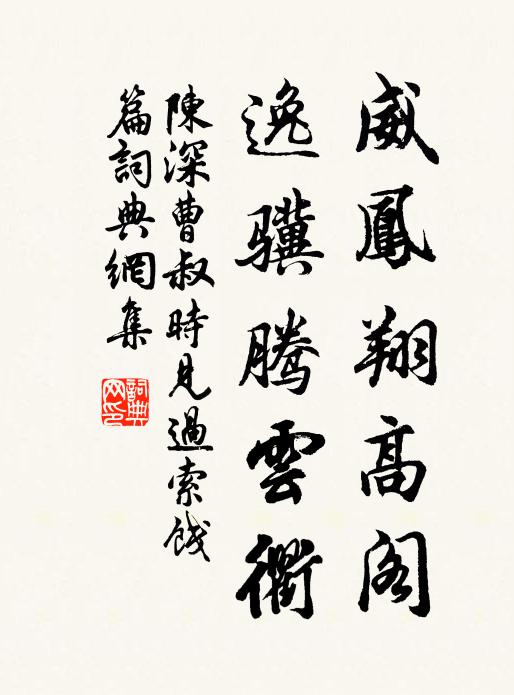 威鳳翔高阁
逸骥腾雲衢
陳深曹叔時見過索餞
篇詞典網集
詞典网印